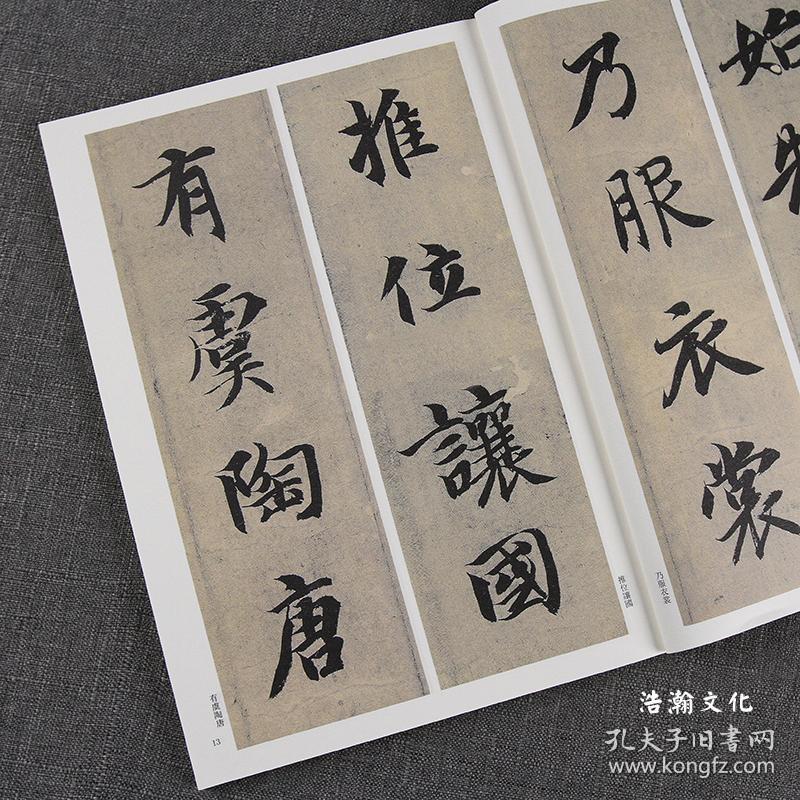 始
乃服衣裳
乃服衣裳
推位讓國
推位讓國
有虞陶唐
有虞陶唐
13
浩瀚文化
孔夫子旧書网
www.kongfz.com